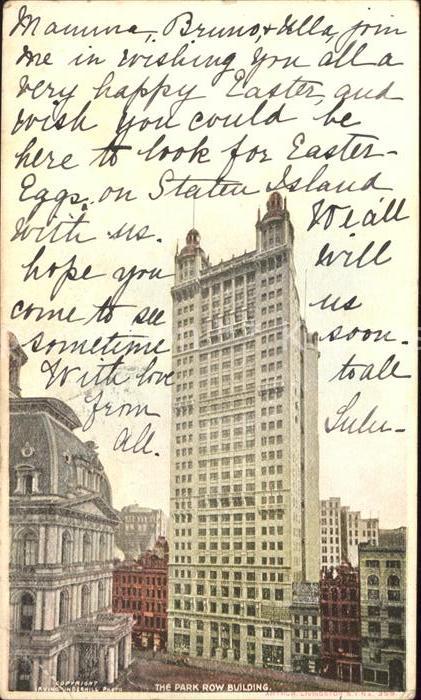 Mamma, Bruno, & Ulla, join
me in wishing you all a
very happy Easter, and
wish you could be
here to look for Easter-
Eggs, on Staten Island
with us. We all
hope you will
come to see us
sometime soon.
With love to all
from Lulu-
all.
COPYRIGHT
IRVING UNDERHILL PHOTO
THE PARK ROW BUILDING.
ARTHUR LIVINGSTON N.Y. No.